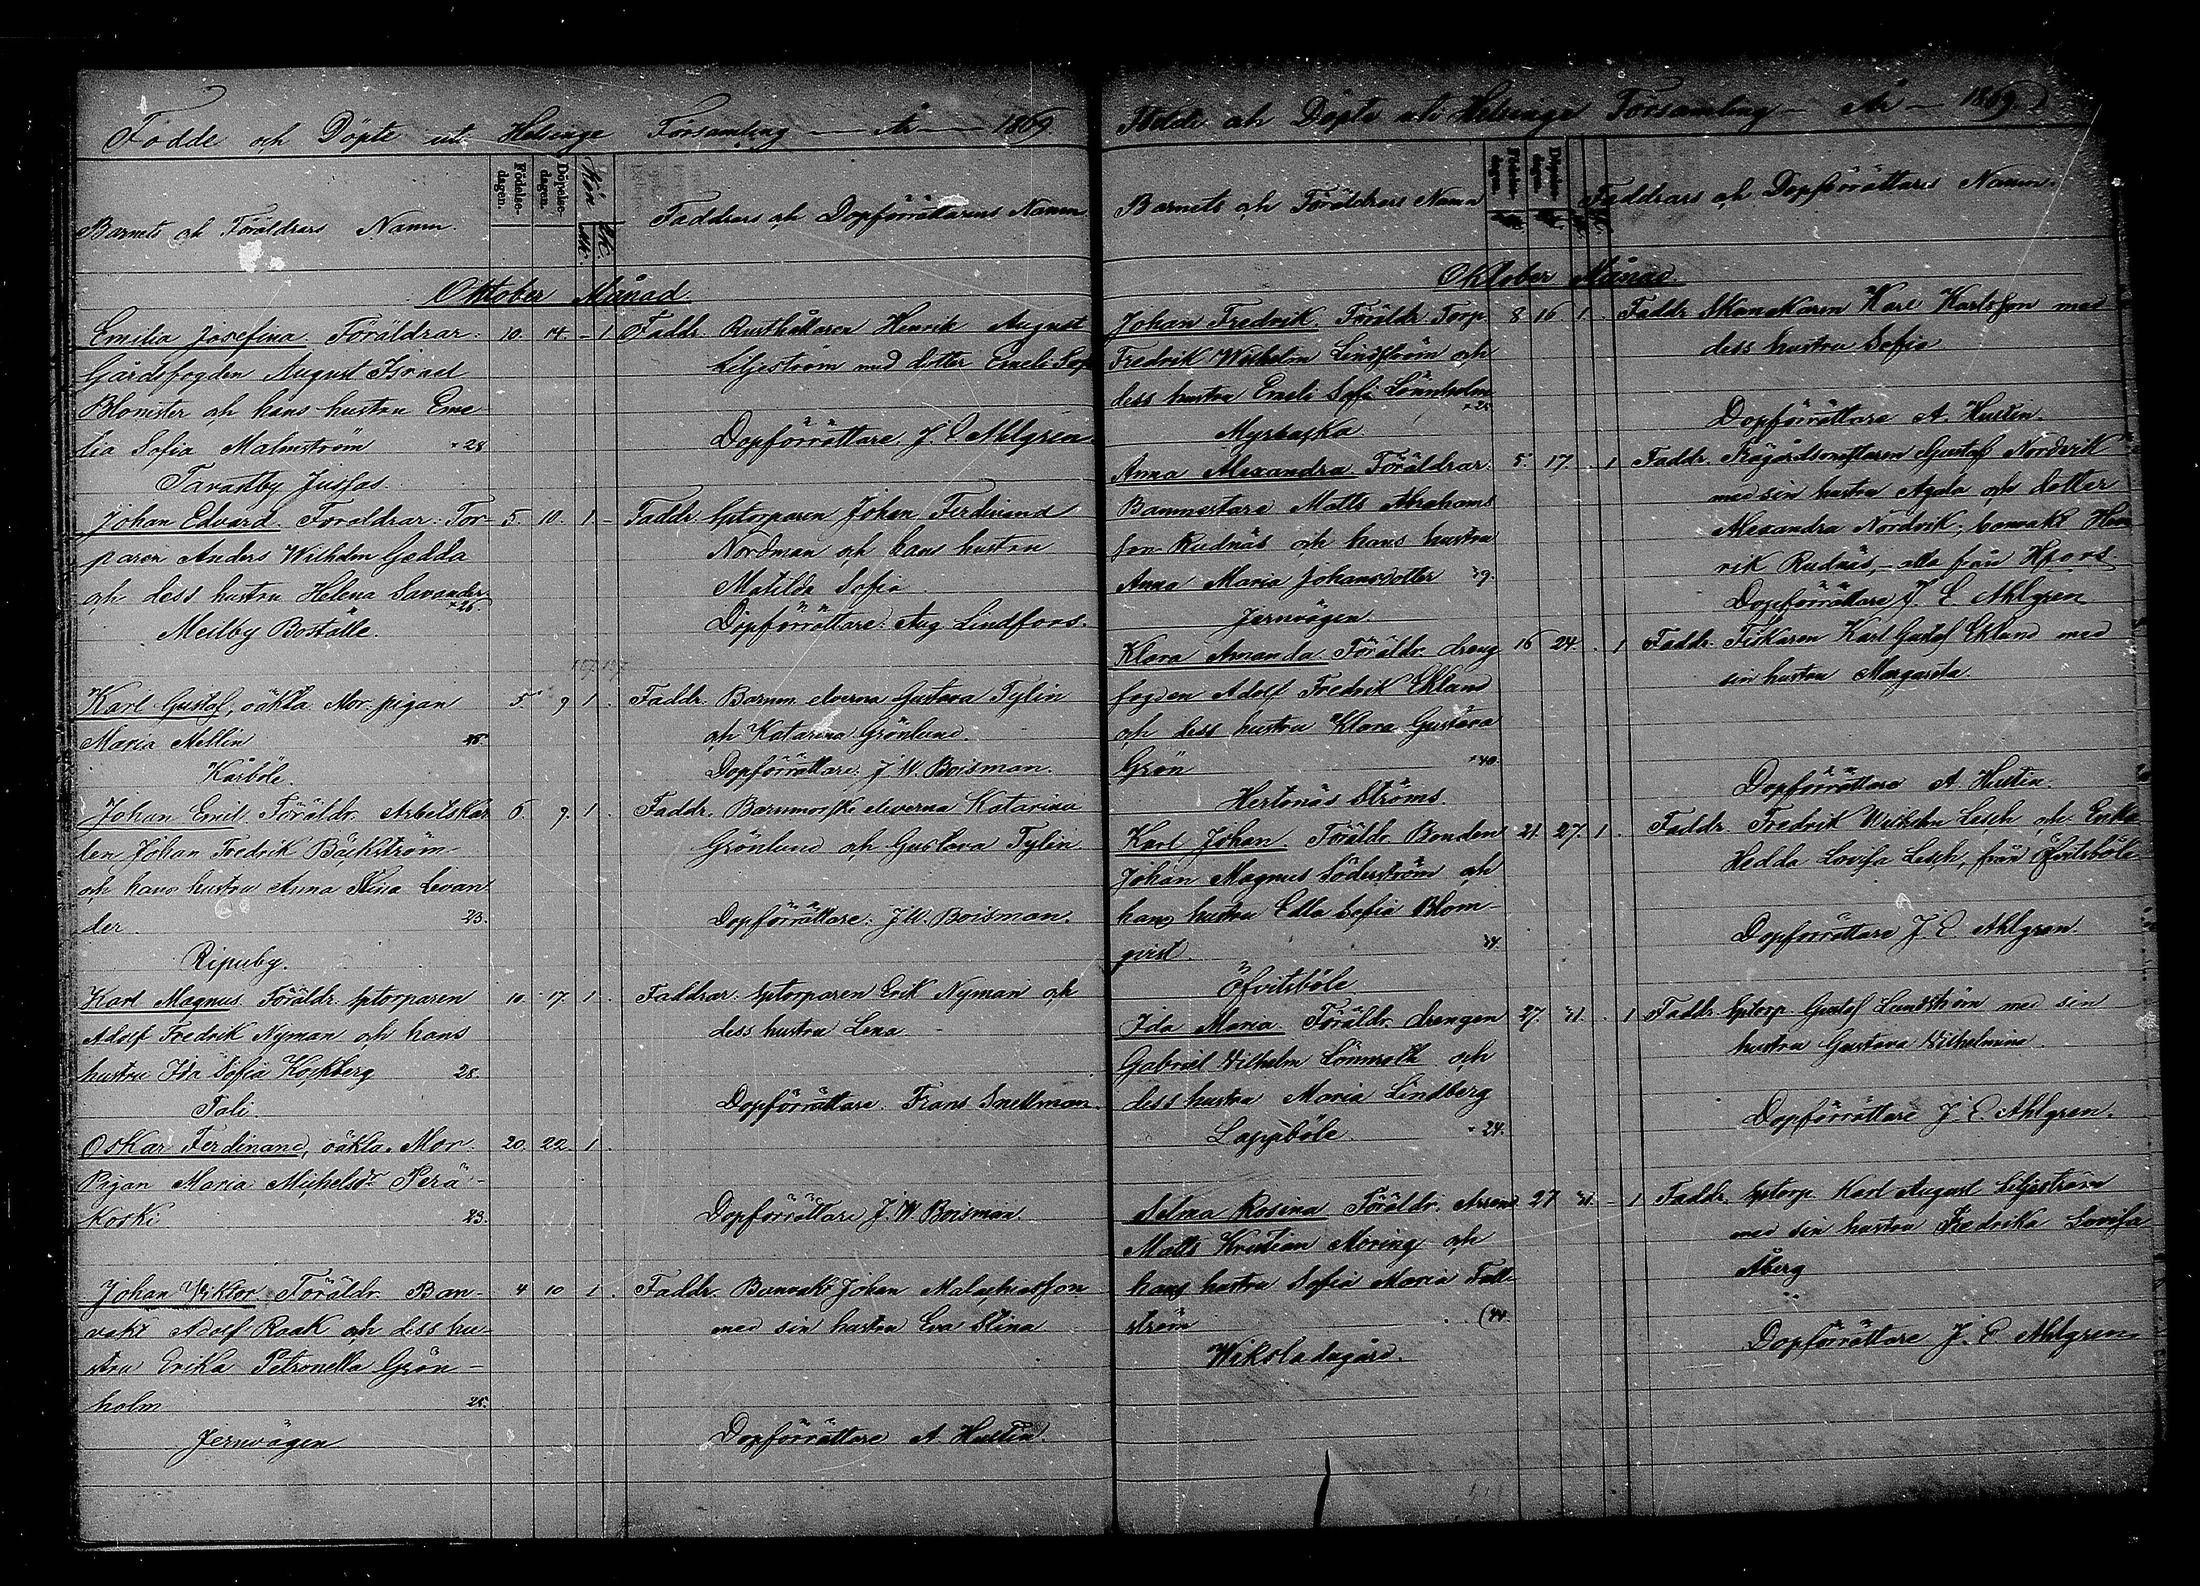 Födde och Döpte uti Helsinge Församling — År — 1869.
Barnets och Föräldrars Namn.
Födelse-dagen.
Döpelse-dagen.
Kön
Mk.
Qk.
Faddrars och Dopförrättarens Namn
Oktober Månad
Emilia Josefina Föräldrar: 10. 14. - 1 Faddr. Rusthållaren Henrik August
Gårdsfogden August Israel Liljeström med dotter Emeli Sofi
Blomster och hans hustru Eme
lia Sofia Malmström 28 Dopförrättare J. E. Ahlgren.
Tavastby Jusfas.
Johan Edvard Föräldrar: Tor- 5. 10. 1 - Faddr. Sptorparen Johan Ferdinand
paren Anders Wilhelm Gedda Nordman och hans hustru
och dess hustru Helena Savander 26. Matilda Sofia
Meilby Boställe. Dopförrättare: Aug. Lindfors.
Karl Gustaf, oäkta Mor. pigan 5 9 1. Faddr. Barnm. eleverna Gustava Tylin
Maria Mellin och Katarina Grönlund.
Kårböle. Dopförrättare: J. W. Boisman.
Johan Emil Föräldr. Arbetskar 6. 9. 1. Faddr. Barnmorske eleverna Katarina
len Johan Fredrik Bäckström Grönlund och Gustava Tylin
och hans hustru Anna Stina Levan
der 23. Dopförrättare: J. W. Boisman.
Ripuby.
Karl Magnus Föräldr. Sptorparen 10. 17. 1. Faddrar: Sptorparen Erik Nyman och
Adolf Fredrik Nyman och hans dess hustru Lena
hustru Ida Sofia Kockberg 28.
Tali. Dopförrättare: Frans Snellman.
Oskar Ferdinand, oäkta. Mor. 20. 22. 1.
Pigan Maria Michelsdr Perä-
koski 23. Dopförrättare J. W. Boisman.
Johan Viktor Föräldr. Ban- 4 10 1. Faddr. Banvakt Johan Malachiasson
vakt Adolf Raak och dess hu- med sin hustru Eva Stina
stru Erika Petronella Grön-
holm 25.
Jernvägen Dopförrättare A. Hustin.
Födde och Döpte uti Helsinge Församling — År — 1869.
Barnets och Föräldrars Namn
Födelse-dagen.
Döpelse-dagen.
Faddrars och Dopförrättares Namn.
Oktober Månad.
Johan Fredrik. Föräldr. Torp. 8 16 1. Faddr. Skomakaren Karl Karlsson med
Fredrik Wilhelm Lindström och dess hustru Sofia
dess hustru Emeli Sofi Lönnholm 25 Dopförrättare A. Hustin.
Myrbacka
Anna Alexandra Föräldrar. 5. 17. 1 Faddr. Trägårdsmästaren Gustaf Nordvik
Banmästare Matts Abrahams med sin hustru Agata och dotter
son Rudnäs och hans hustru Alexandra Nordvik, banvakt Hen
Anna Maria Johansdotter 39. rik Rudnäs, — alla från Hfors
Jernvägen. Dopförrättare J. E. Ahlgren
Klara Amanda Föräldr. dreng 16 24. . 1 Faddr. Fiskaren Karl Gustaf Eklund med
fogden Adolf Fredrik Eklund sin hustru Margareta.
och dess hustru Klara Gustava
Grön 40. Dopförrättare A. Hustin.
Hertonäs Ströms.
Karl Johan. Föräldr. Bonden 21. 27. 1. Faddr. Fredrik Wilhelm Lesch och Enka
Johan Magnus Söderström och Hedda Lovisa Lesch, från Öfvitsböle
hans hustru Edla Sofia Blom-
qvist 34. Dopförrättare J. E. Ahlgren.
Öfvitsböle
Ida Maria. Föräldr. drengen 27. 31. . 1 Faddr. Sptorp. Gustaf Lundström med sin
Gabriel Wilhelm Lönnroth och hustru Gustava Wilhelmina.
dess hustru Maria Lindberg
Lappböle. 24. Dopförrättare J. E. Ahlgren.
Selma Rosina Föräldr. Arrend. 27 31. - 1 Faddr. Sptorp. Karl August Liljeström
Matts Kristian Moring och med sin hustru Fredrika Lovisa
hans hustru Sofia Maria Fall- Åberg
ström (44 Dopförrättare J. E. Ahlgren
Wiksladugård.